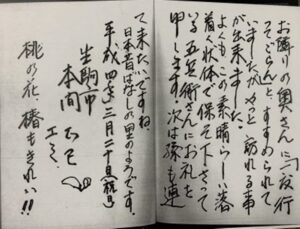 お隣りの奥さんに「一度行
ってごらん」とすすめられて
いましたがやっと訪れる事
が出来ました。
よくもこの素晴らしい落
着いた状体で保存下さって
いる五兵衛さんにお礼を
申します。次は孫も連
て来たいですね。
日本昔ばなしの里のようです。
平成四年三月二十日(祝)
生駒市
本間
エミ
桃の花、椿もきれい!!